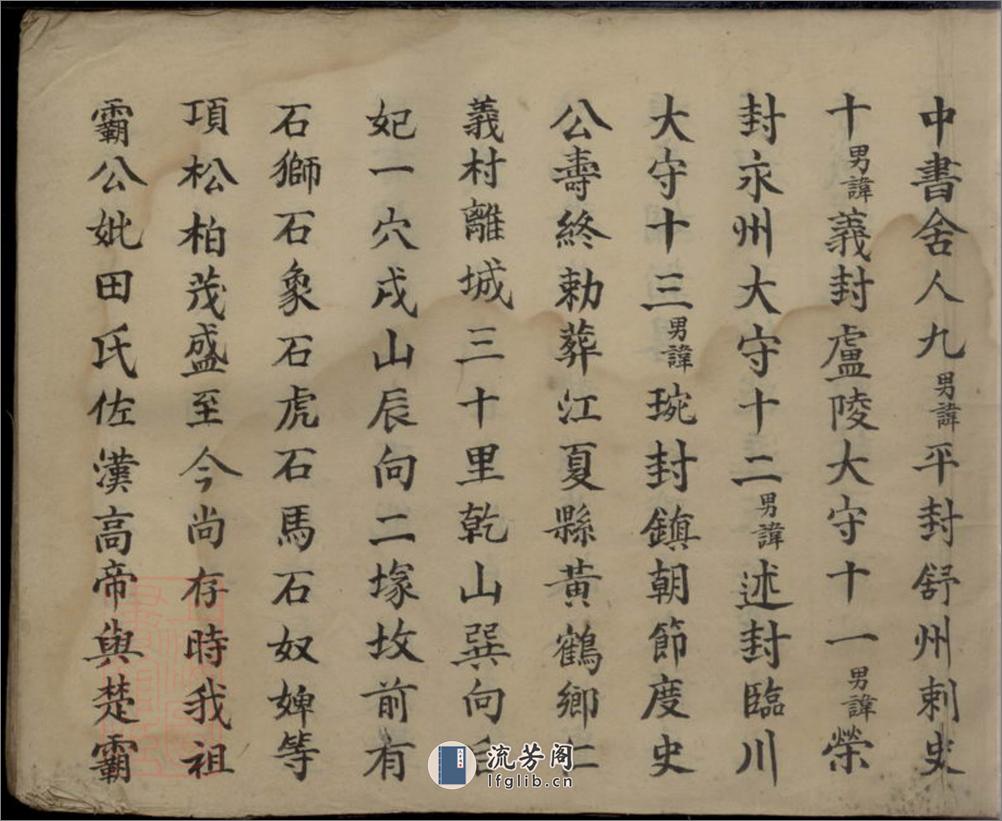 中書舍人九男諱平封舒州剌史
十男諱義封盧陵大守十一男諱榮
封永州大守十二男諱述封臨川
大守十三男諱琬封鎮朝節度史
公壽終勅葬江夏縣黃鶴鄉仁
義村離城三十里乾山巽向
妃一穴戌山辰向二塚坟前有
石獅石象石虎石馬石奴婢等
項松柏茂盛至今尚存時我祖
霸公妣田氏佐漢高帝與楚霸
流芳阁
lfglib.cn